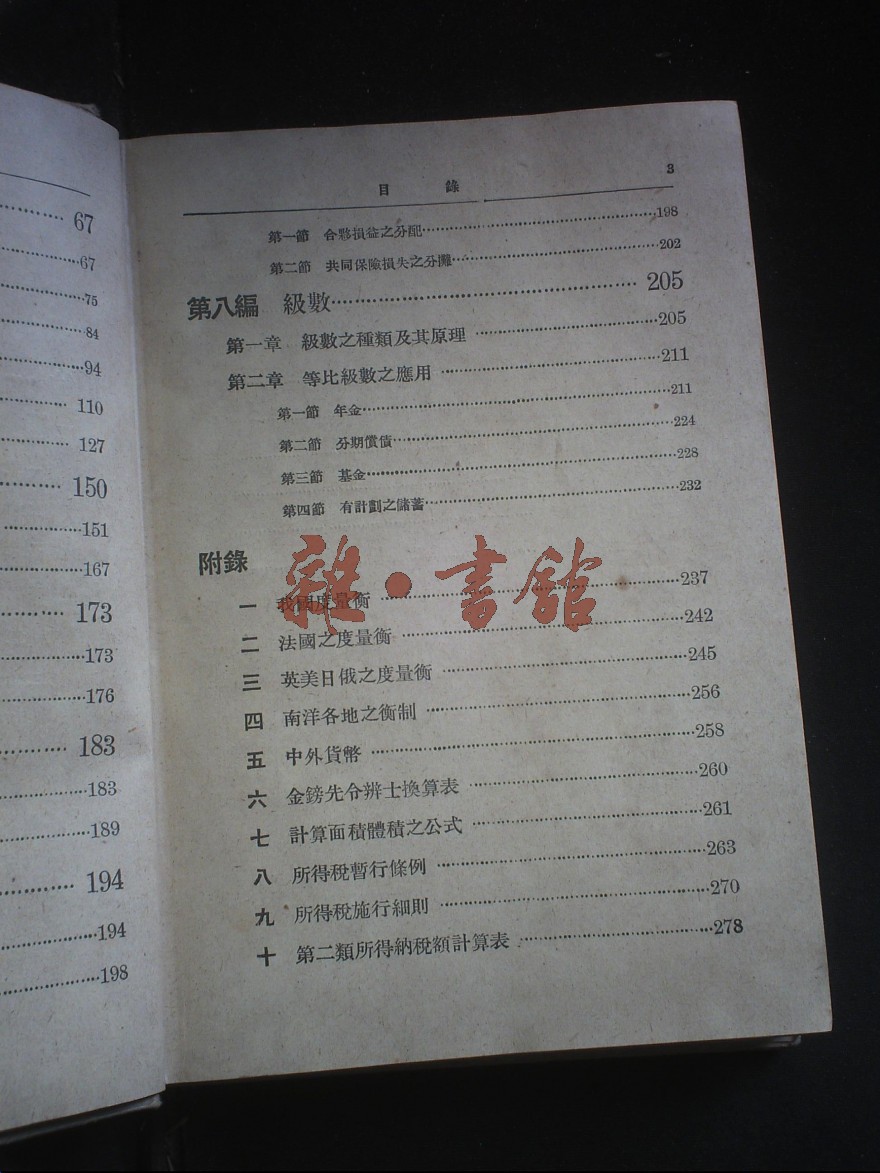 67
67
75
84
94
110
127
150
151
167
173
173
176
183
183
189
194
194
198
目 錄 3
第一節 合夥損益之分配 198
第二節 共同保險損失之分攤 202
第八編 級數 205
第一章 級數之種類及其原理 205
第二章 等比級數之應用 211
第一節 年金 211
第二節 分期償債 224
第三節 基金 228
第四節 有計劃之儲蓄 232
附錄
雜·書舘
一 我國度量衡 237
二 法國之度量衡 242
三 英美日俄之度量衡 245
四 南洋各地之衡制 256
五 中外貨幣 258
六 金鎊先令辨士換算表 260
七 計算面積體積之公式 261
八 所得稅暫行條例 263
九 所得稅施行細則 270
十 第二類所得納稅額計算表 278